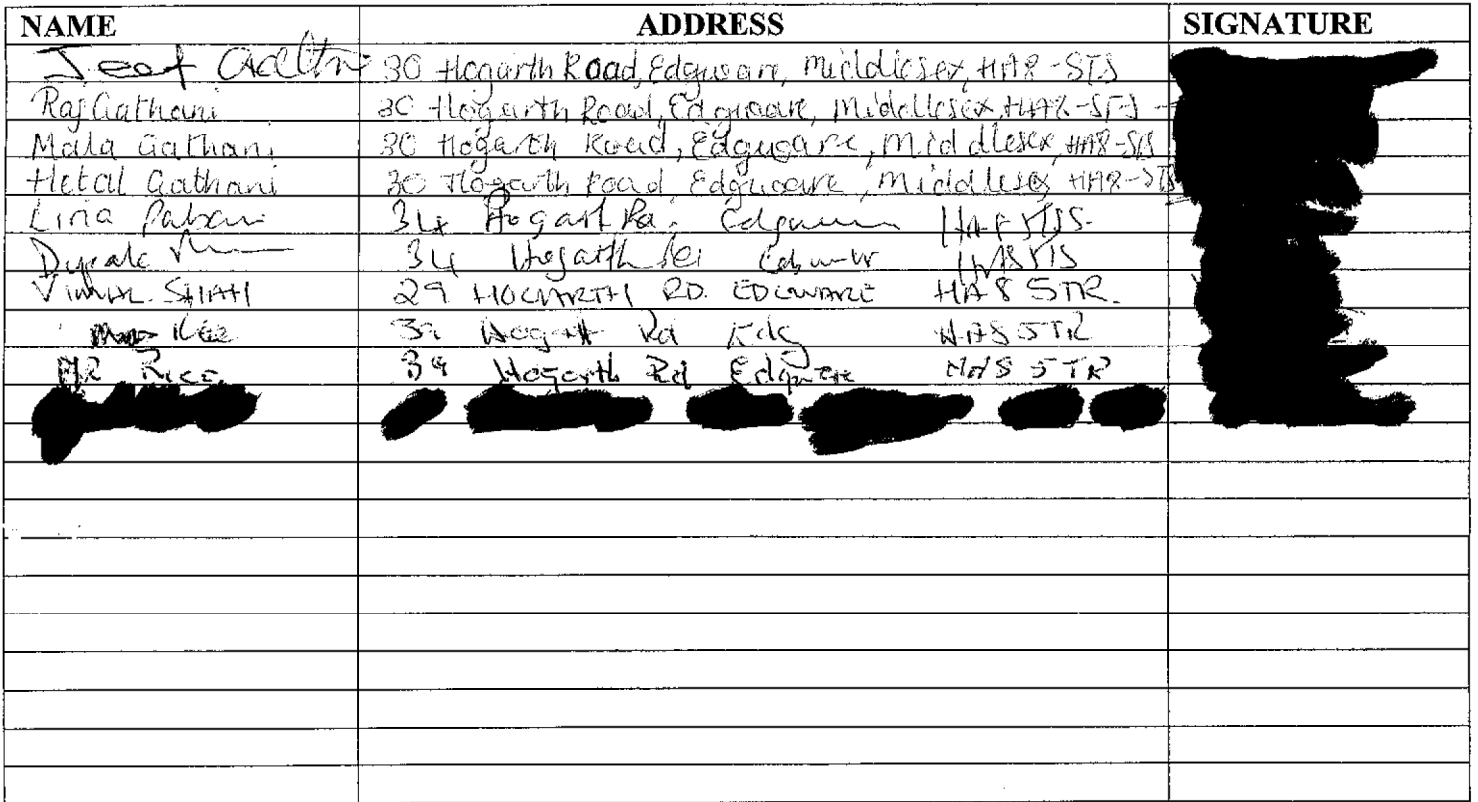 NAME ADDRESS SIGNATURE
30 Hogarth Road, Edgware, Middlesex, HA8-5TS
Raj Gathani 30 Hogarth Road, Edgware, Middlesex, HA8-5TS
Mala Gathani 30 Hogarth Road, Edgware, Middlesex, HA8-5TS
Hetal Gathani 30 Hogarth Road Edgware, Middlesex HA8-5TS
Lina 34 Hogart Rd. HA8 5TS.
34 Hogarth HA8 5TS
VIMAL. SHAH 29 HOGARTH RD. EDGWARE HA8 5TR.
39 Rd Edg HA8 5TR
MR RICE 39 Hogarth Rd Edgware HA8 5TR